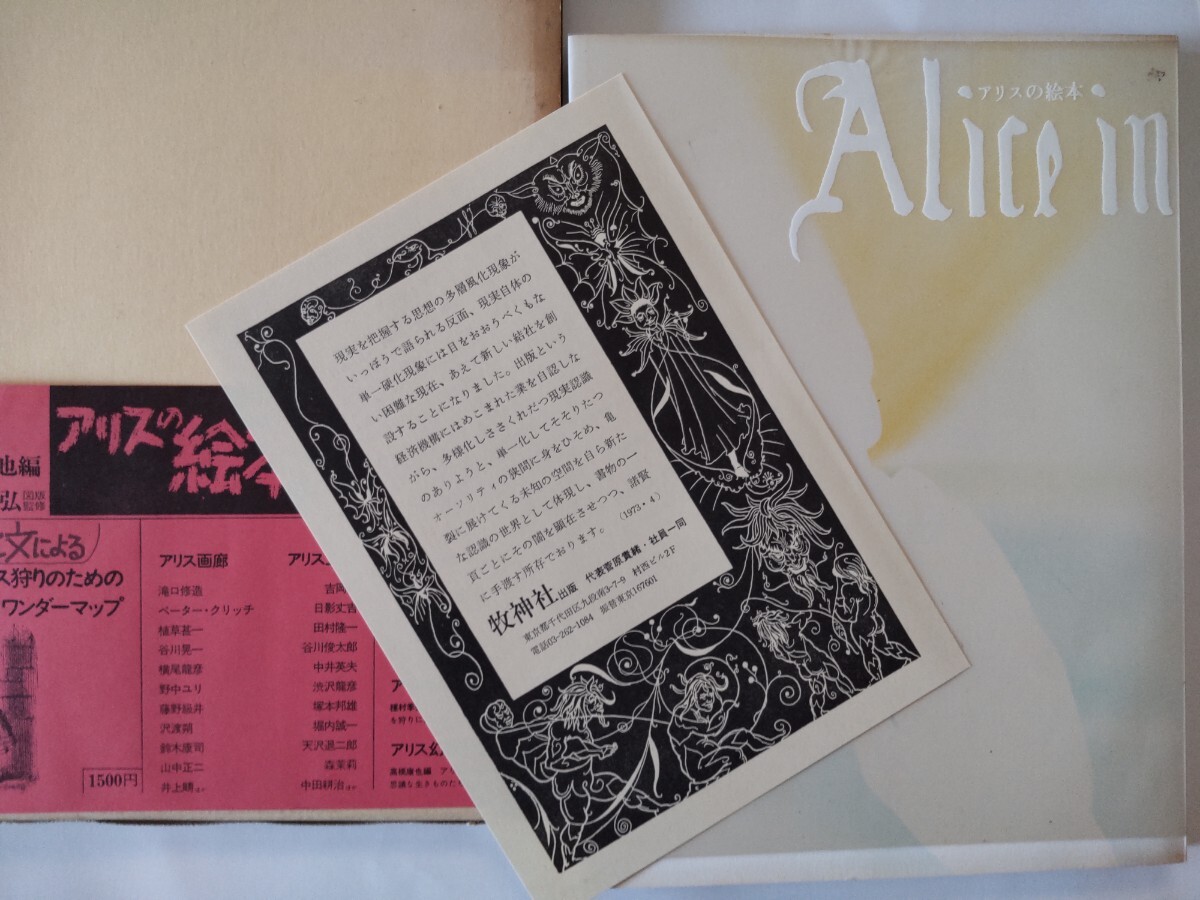 ・アリスの絵本・
Alice in
現実を把握する思想の多層風化現象が
いっぽうで語られる反面、現実自体の
単一硬化現象には目をおおうべくもな
い困難な現在、あえて新しい結社を創
設することになりました。出版という
経済機構にはめこまれた業を自認しな
がら、多様化しささくれだつ現実認識
のありようと、単一化してそそりたつ
オーソリティの狭間に身をひそめ、亀
裂に展けてくる未知の空間を自ら新た
な認識の世界として体現し、書物の一
頁ごとにその闇を顕在させつつ、諸賢
に手渡す所存でおります。 (1973・4)
牧神社出版 代表菅原貴緒・社員一同
東京都千代田区九段南3-7-9 村西ビル2F
電話03-262-1084 振替東京167601
アリスの絵本
也編
弘 図版監修
文による
ス狩りのための
ワンダーマップ
1500円
アリス画廊
滝口修造
ペーター・クリッチ
植草甚一
谷川晃一
横尾龍彦
野中ユリ
藤野級井
沢渡朔
鈴木康司
山中正二
井上晴ほか
アリス
吉岡
日影丈吉
田村隆一
谷川俊太郎
中井英夫
渋沢龍彦
塚本邦雄
堀内誠一
天沢退二郎
森茉莉
中田耕治ほか
ア
種村季
を狩りに
アリス幻
高橋康也編 アリ
思議な生きものた